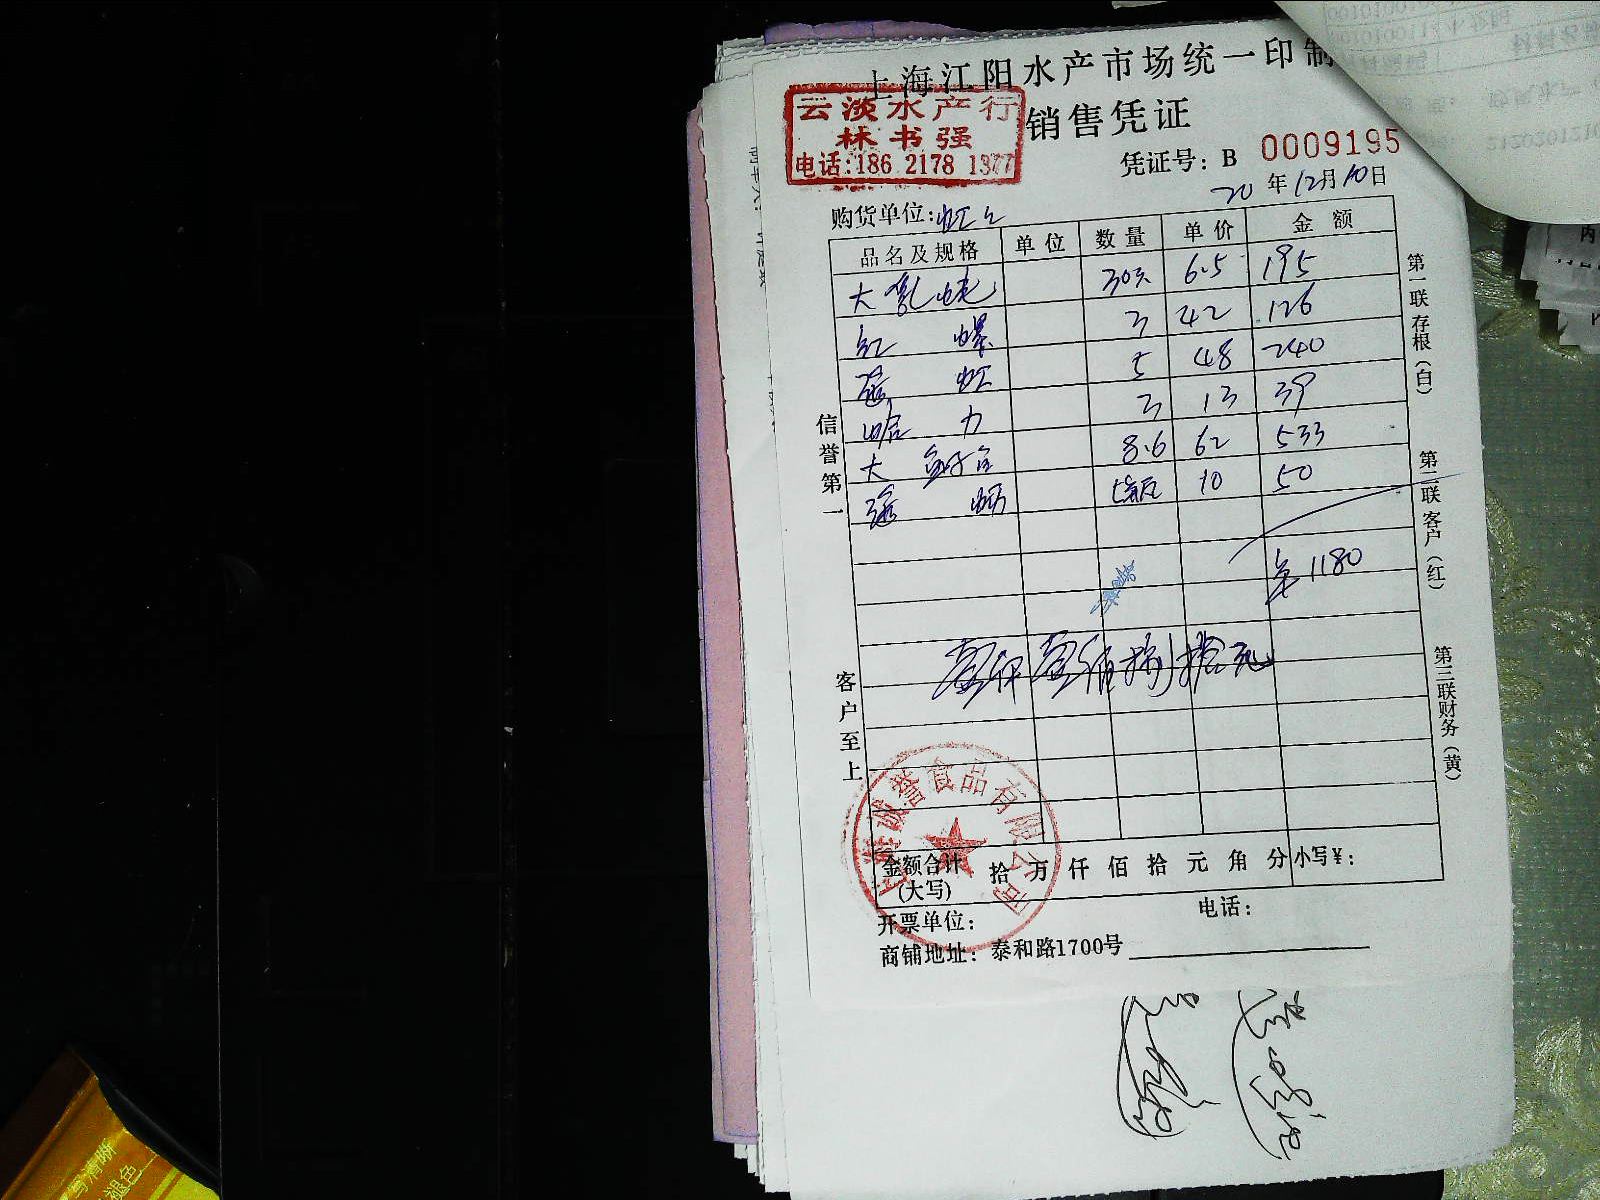 上海江阳水产市场统一印制
云淡水产行
林书强
电话:186 2178 1377
销售凭证
凭证号: B 0009195
20 年 12月 10日
购货单位:虹
品名及规格 单位 数量 单价 金额
大 30只 6.5 195
红 螺 3 42 126
虾 5 48 240
蛤 力 3 13 39
大 8.6 62 533
10 50
¥1180
壹仟壹佰捌拾元
信誉第一
客户至上
第一联存根(白)
第二联客户(红)
第三联财务(黄)
上海诚誉食品有限公司
金额合计(大写) 拾 万 仟 佰 拾 元 角 分 小写¥:
开票单位: 电话:
商铺地址: 泰和路1700号
写清晰
褪色